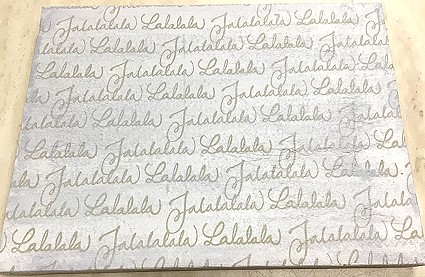 Falalalala Lalalala Falalalala Lalalala
Falalalala Lalalala Falalalala
Lalalala Falalalala Lalalala Falalalala
Falalalala Lalalala Falalalala Lalalala
Lalalala Falalalala Lalalala
Lalalala Falalalala Lalalala Falalalala
Falalalala Lalalala Falalalala Lalalala
Lalalala Falalalala Lalalala
Lalalala Falalalala Lalalala Falalalala